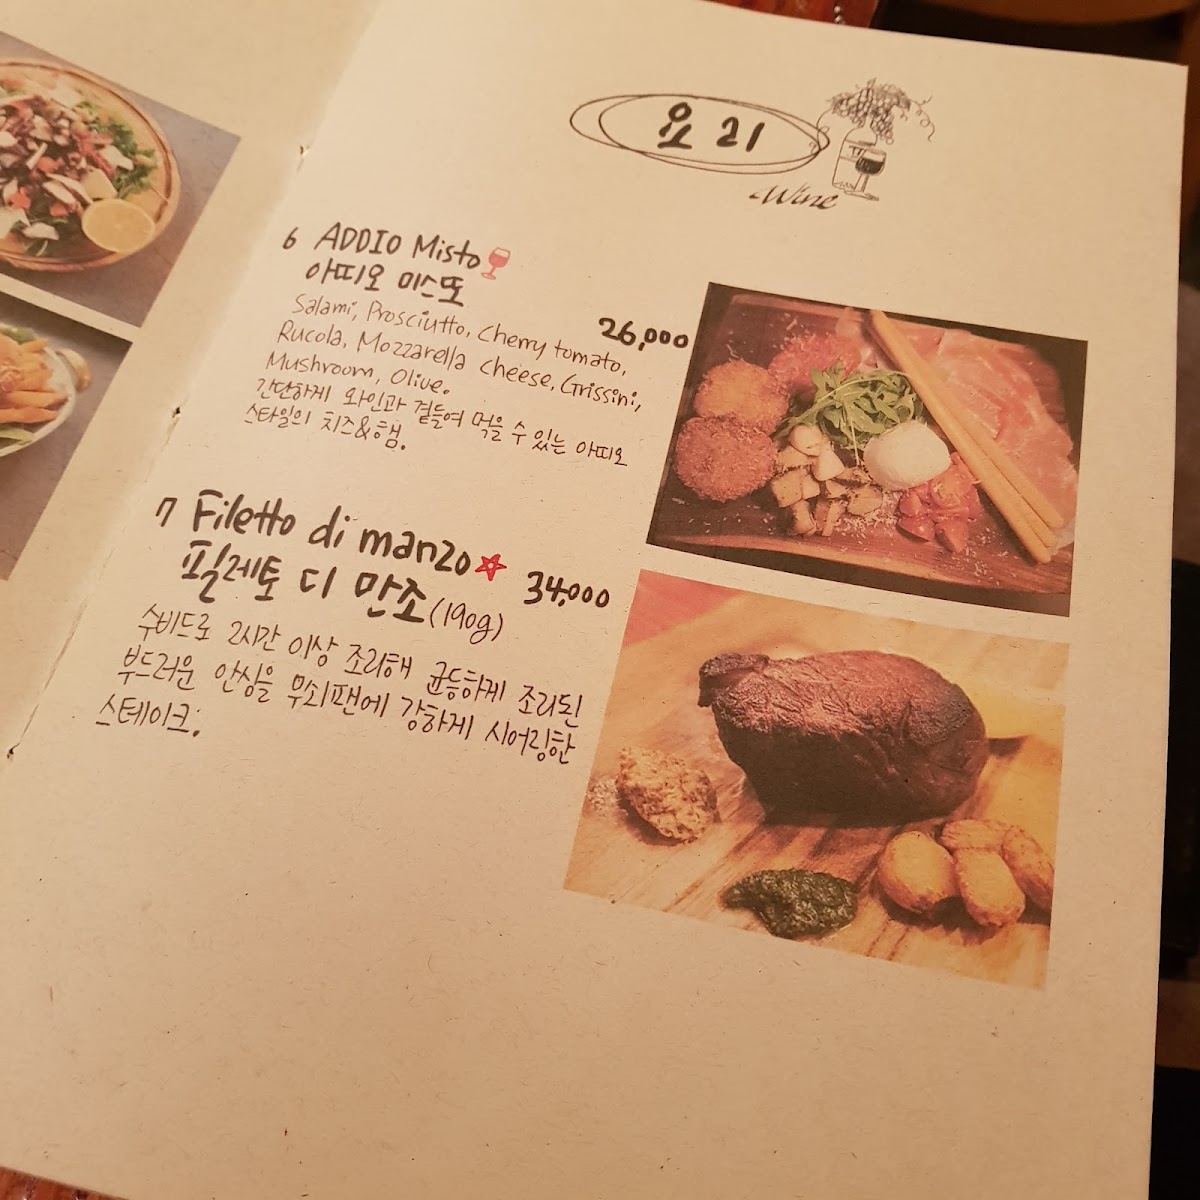 요리
Wine
6 ADDIO Misto
아띠오 미스또
26,000
Salami, Prosciutto, Cherry tomato,
Rucola, Mozzarella cheese, Grissini,
Mushroom, Olive.
간단하게 와인과 곁들여 먹을 수 있는 아띠오
스타일의 치즈&햄.
7 Filetto di manzo
34,000
필레토 디 만조 (190g)
수비드로 2시간 이상 조리해 균등하게 조리된
부드러운 안심을 무쇠팬에 강하게 시어링한
스테이크.